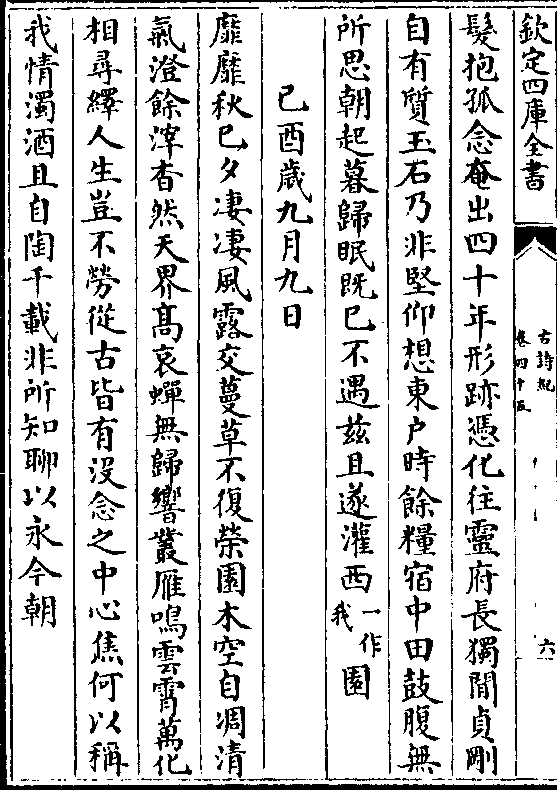 欽定四庫全書
古詩紀
卷四十五
六
髮抱孤念奄出四十年形跡憑化往靈府長獨閒貞剛
自有質玉石乃非堅仰想東户時餘糧宿中田鼓腹無
所思朝起暮歸眠既已不遇茲且遂灌西一作我園
己酉歲九月九日
靡靡秋已夕凄凄風露交蔓草不復榮園木空自凋清
氣澄餘滓杳然天界髙哀蟬無歸響叢雁鳴雲霄萬化
相尋繹人生豈不勞從古皆有沒念之中心焦何以稱
我情濁酒且自陶千載非所知聊以永今朝